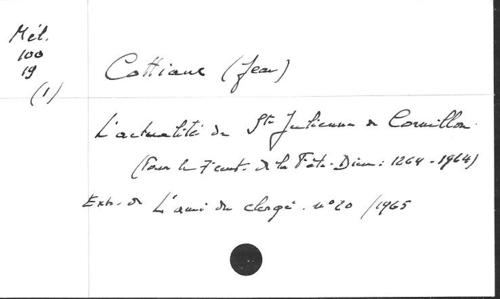 Mél.
100
19
(1)
Cottiaux (Jean)
L'actualité de Ste Julienne de Cornillon.
(Pour le 7e cent. de la Fête-Dieu : 1264-1964)
Extr. de L'ami du clergé. n° 20 / 1965